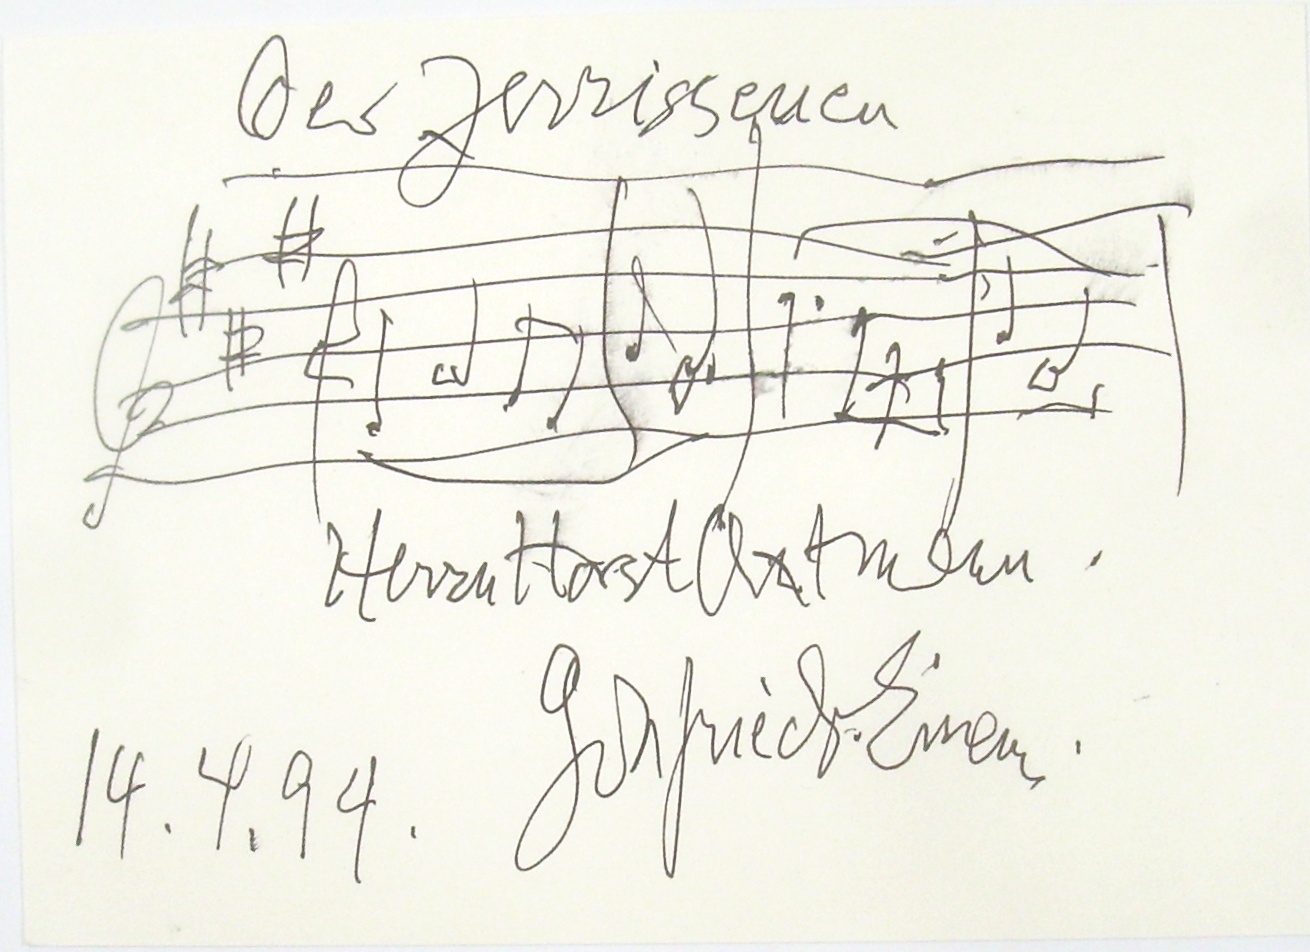 Der Zerrissenen
Herrn Horst Axtmann.
Gottfried v. Einem.
14.4.94.